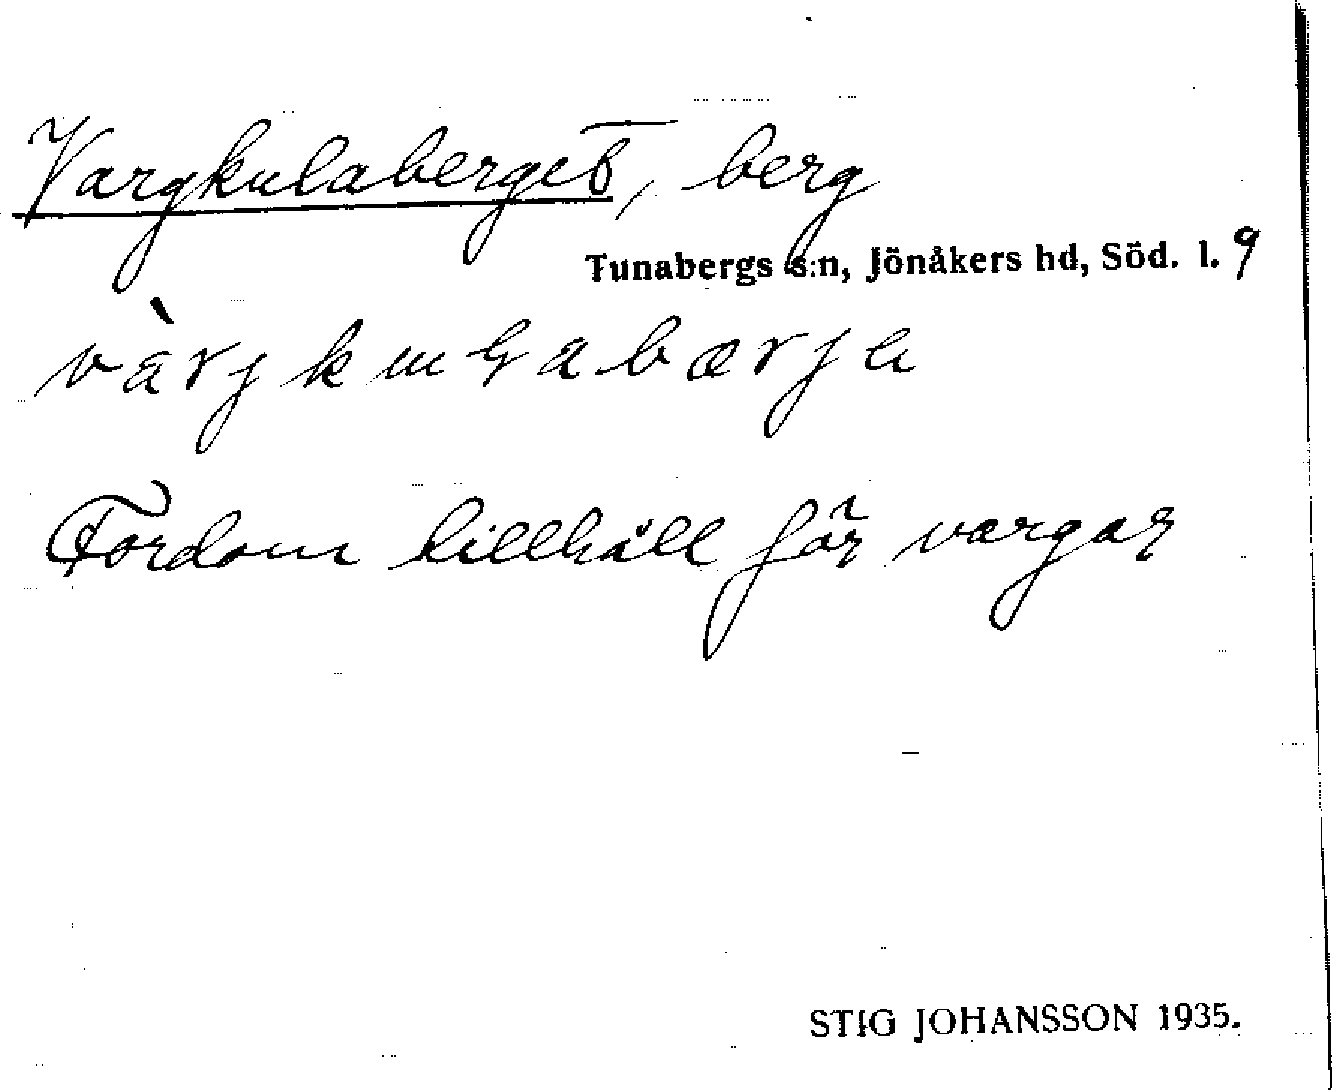 Vargkulaberget, berg
Tunabergs s:n, Jönåkers hd, Söd. l. 9
Fordom tillhåll för vargar
STIG JOHANSSON 1935.